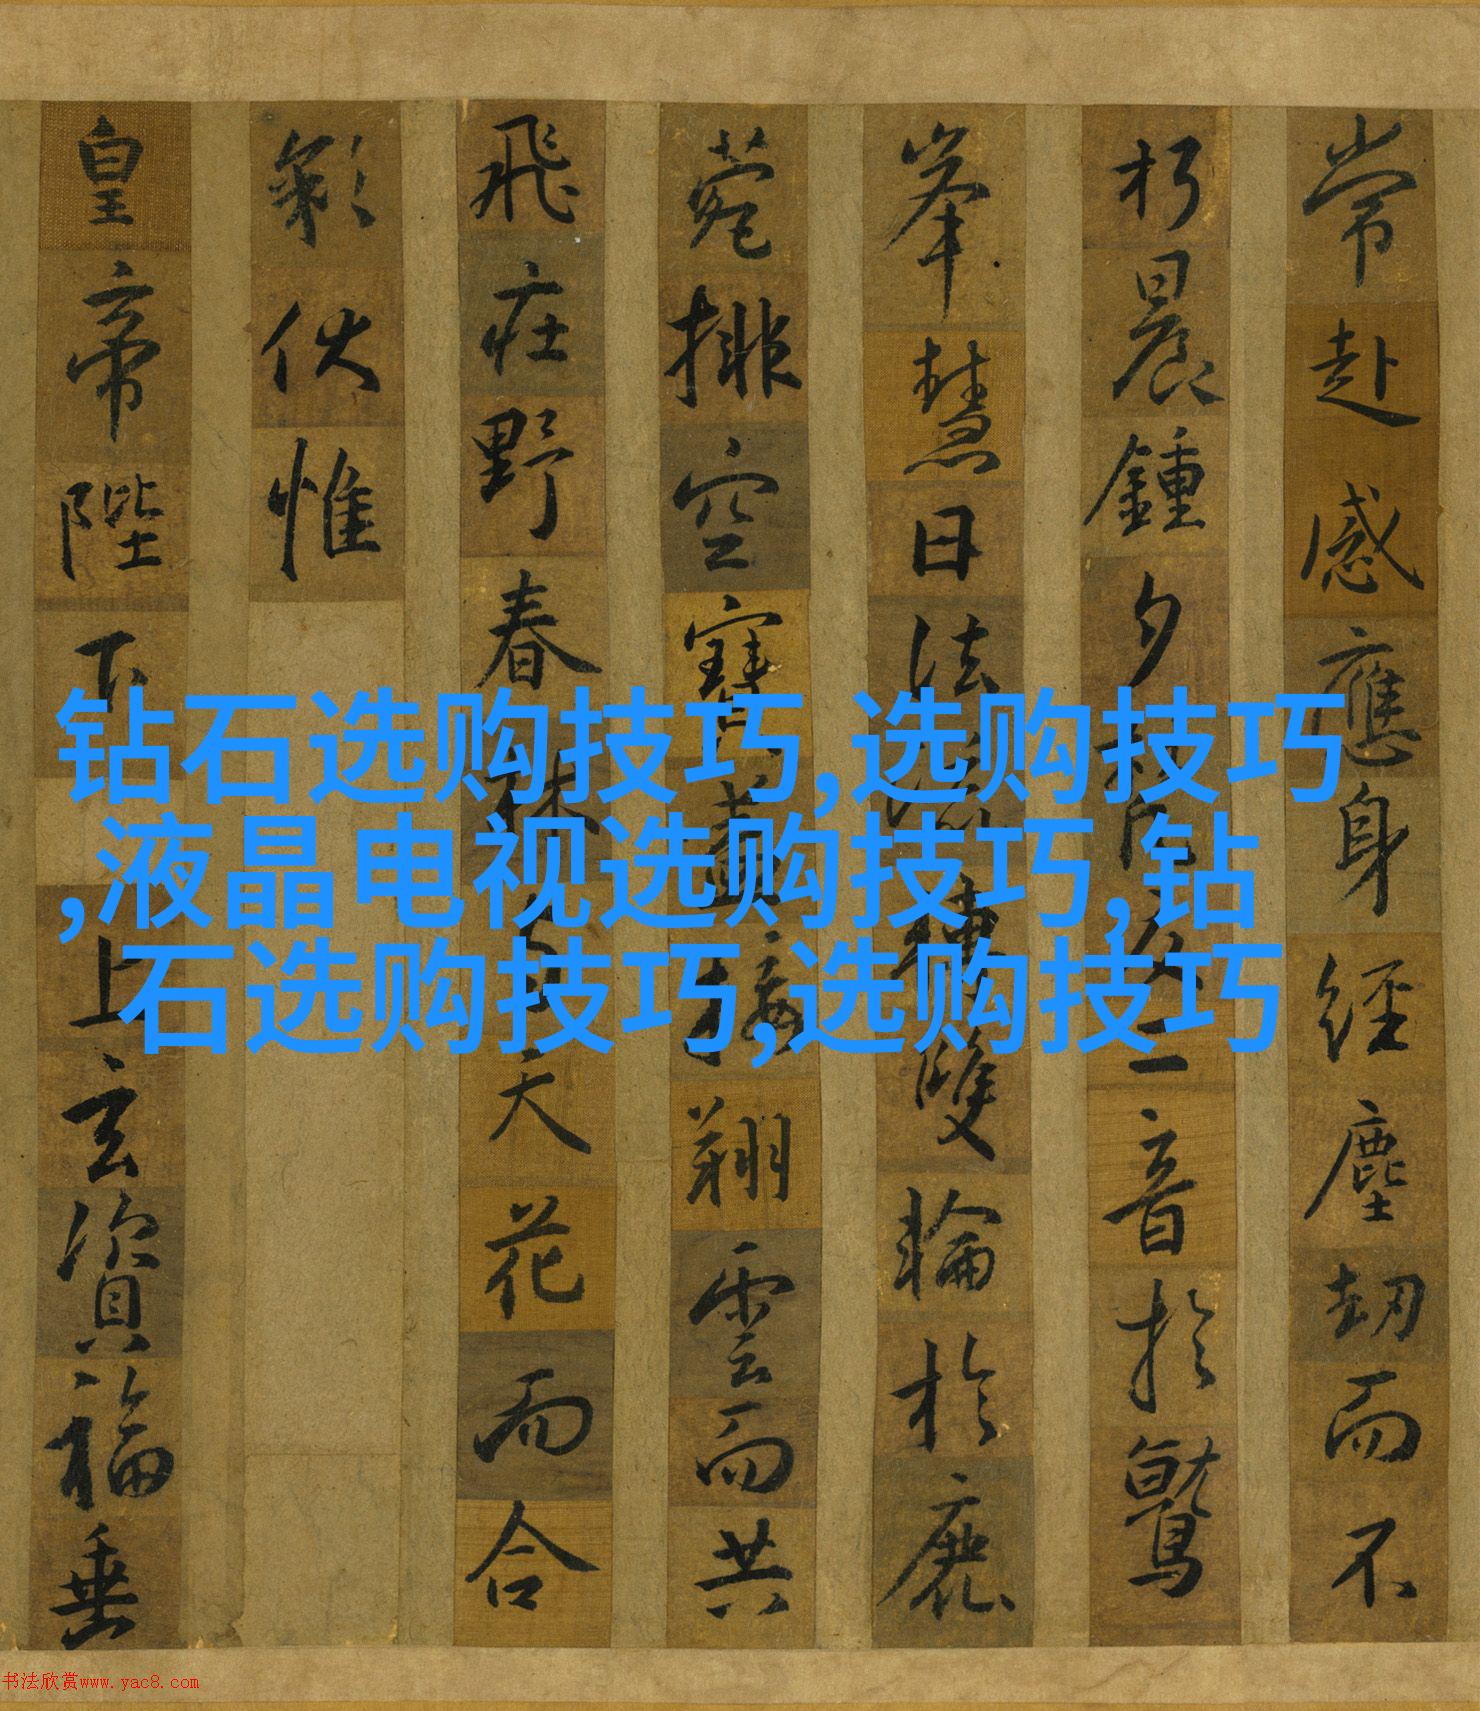 常赴感應身經塵劫而不
朽晨鍾夕梵交二音於鷲
峯慧日法流轉雙輪於鹿
菀排空寶蓋接翔雲而共
飛莊野春林与天花而合
彩伏惟
皇帝陛下上玄資福垂
钻石选购技巧,选购技巧
,液晶电视选购技巧,钻
石选购技巧,选购技巧
书法欣赏www.yac8.com